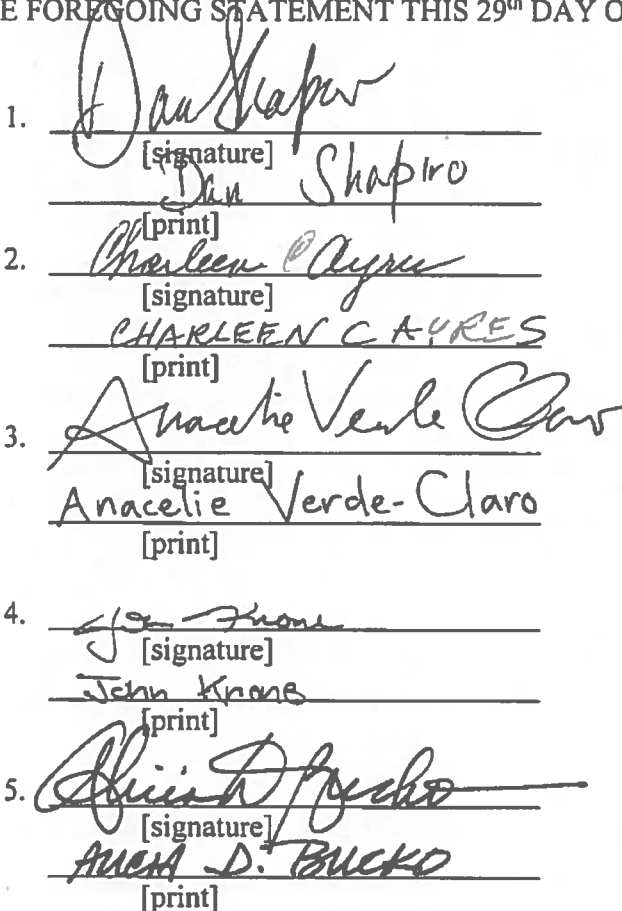 E FOREGOING STATEMENT THIS 29th DAY O
1. Dan Shapiro
[signature]
Dan Shapiro
[print]
2. Charleen C Ayres
[signature]
CHARLEEN C AYRES
[print]
3. Anacelie Verde Claro
[signature]
Anacelie Verde-Claro
[print]
4. John Krone
[signature]
John Krone
[print]
5. Alicia D Bucko
[signature]
ALICIA D. BUCKO
[print]